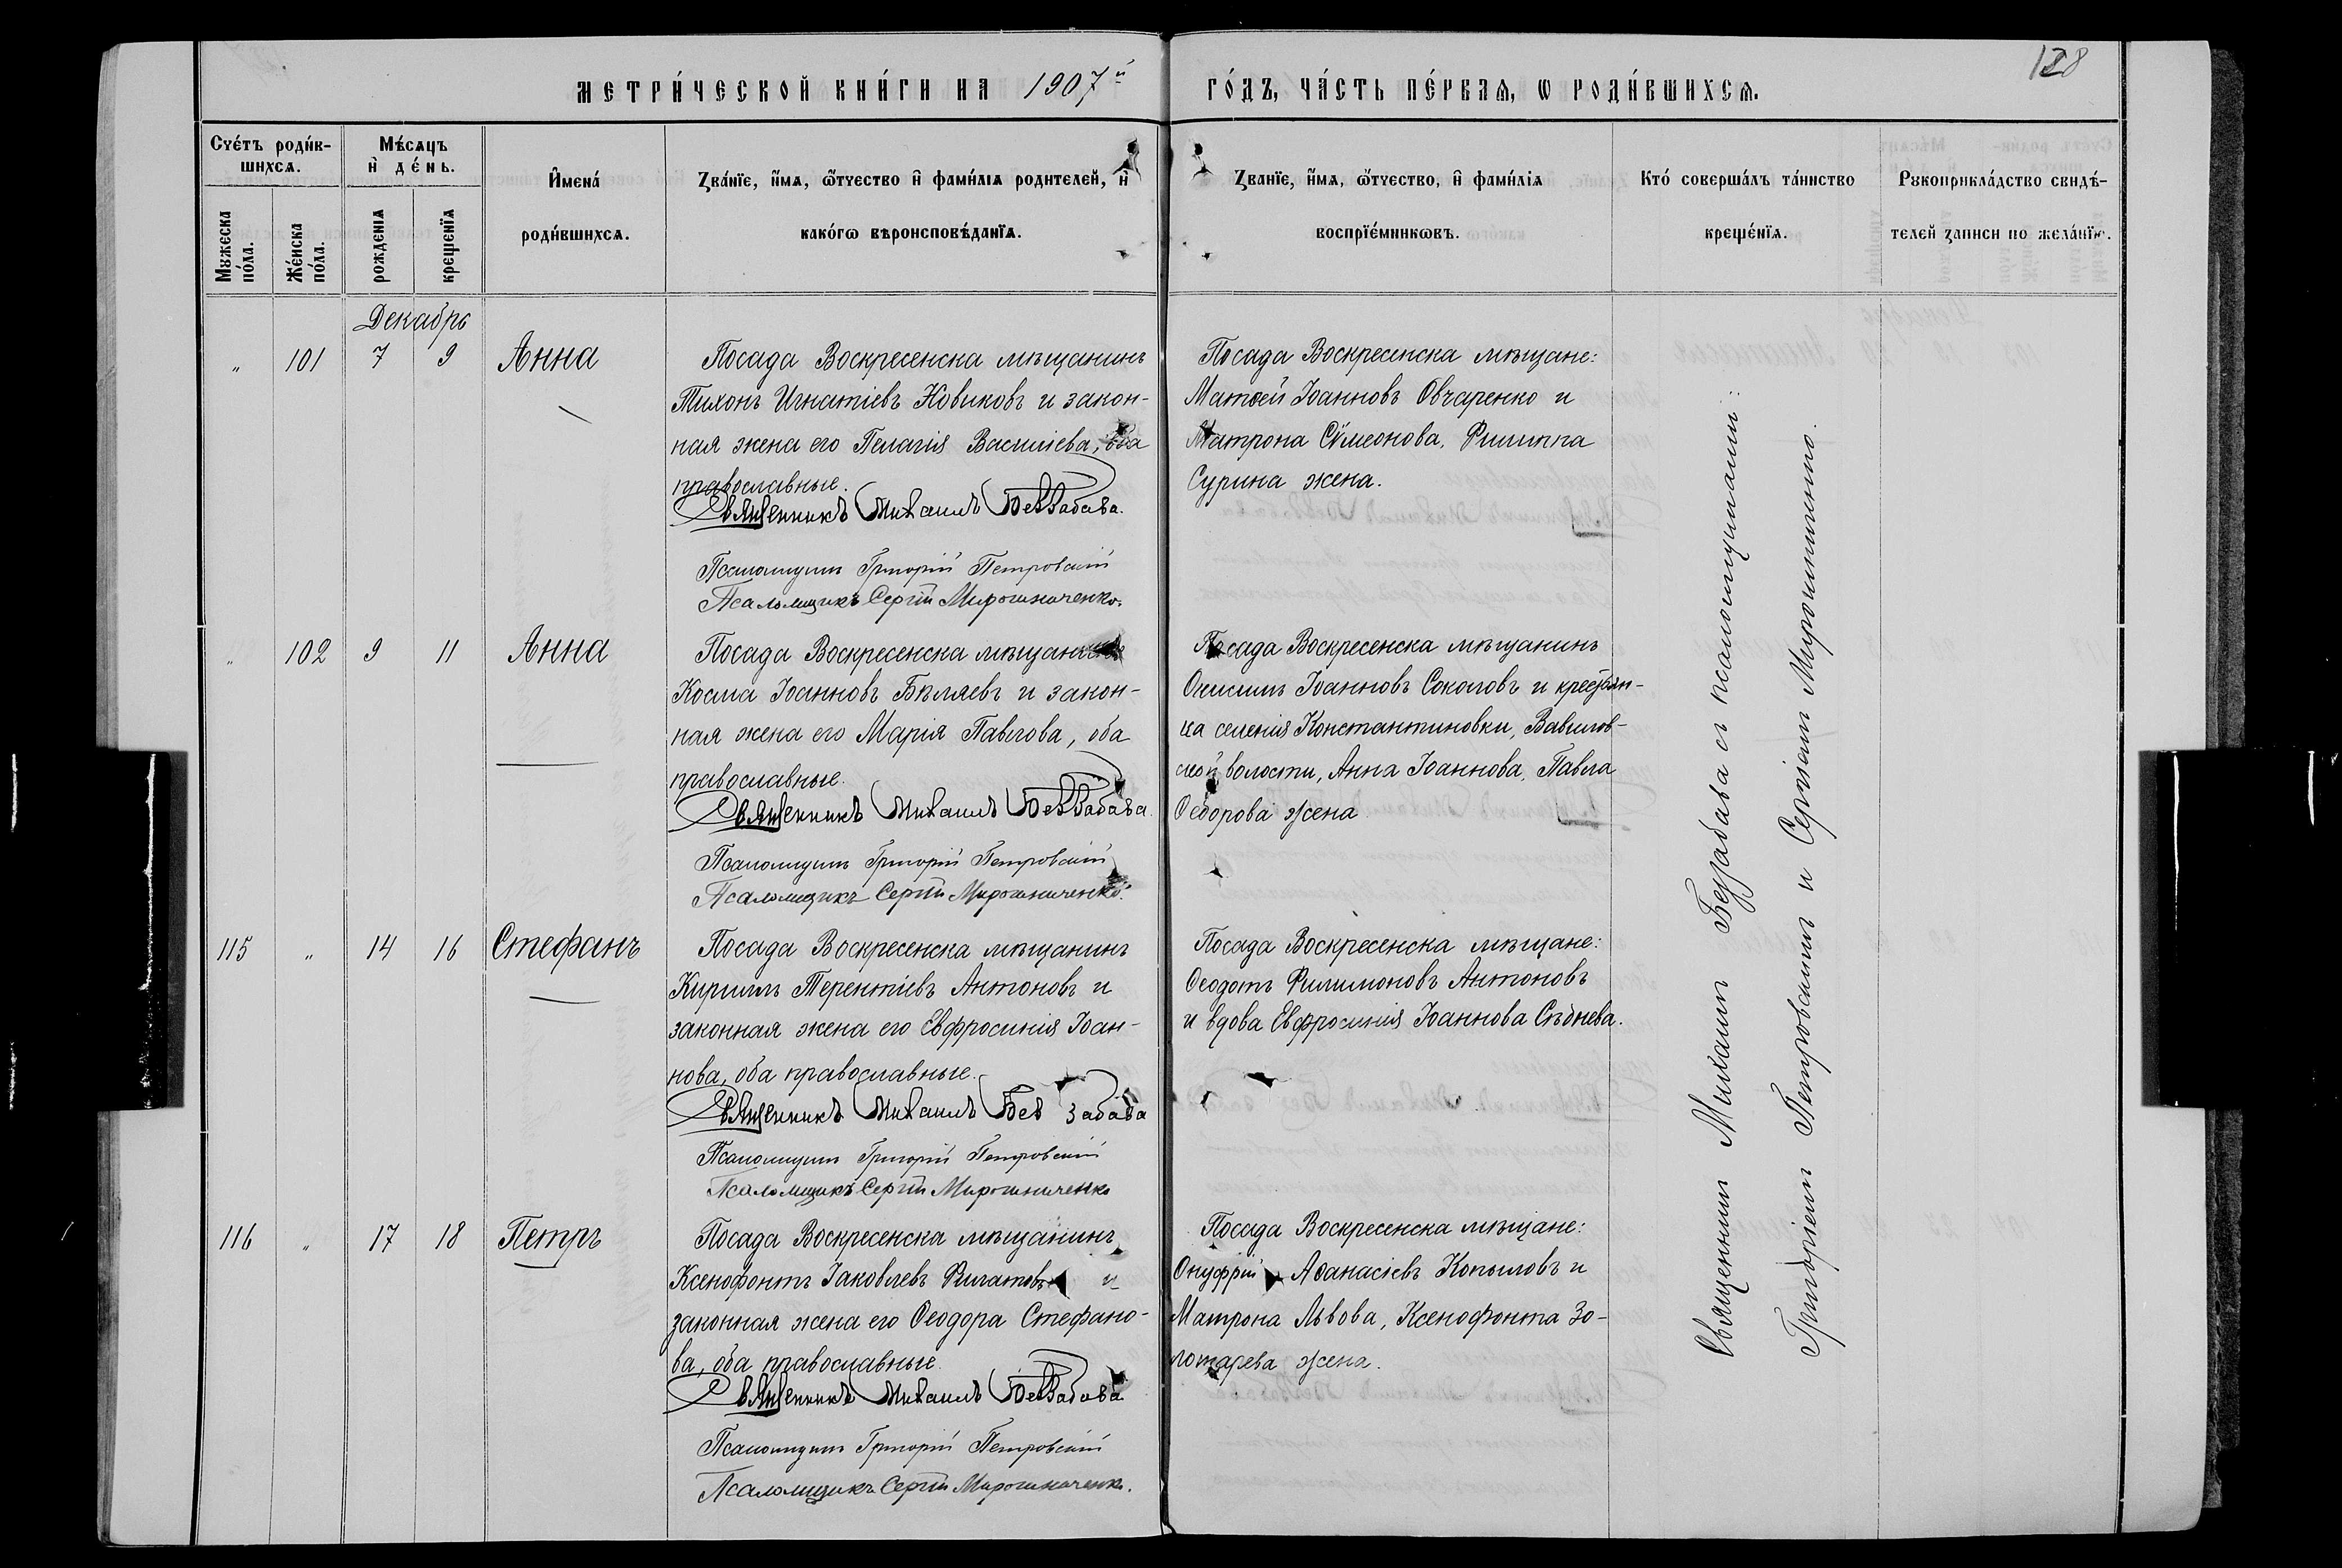 128
МЕТРИ́ЧЕСКОЙ КНИ́ГИ НА 1907й ГО́ДЪ, ЧА́СТЬ ПЕ́РВАЯ, Ѡ РОДИ́ВШИХСЯ.
Сче́тъ роди́в-
шихся.
Мѣ́сяцъ
и҆ де́нь.
Мꙋжеска
по́ла.
Же́нска
по́ла.
рожденія
крещенїя
И҆мена́
роди́вшихся.
Зва́нїе, и҆́мя, ѻ҆́тчество и҆ фами́лїя родителей, и҆
како́гѡ вѣроисповѣ́данїя.
Званїе, и҆́мя, ѻ҆́тчество, и҆ фами́лїя
воспрїе́мникѡвъ.
Кто́ соверша́лъ та́инство
креще́нїя.
Рꙋкоприкла́дство свидѣ́-
телей записи по жела́нїю.
Декабрь
" 101 7 9 Анна
Посада Воскресенска мѣщанинъ
Тихонъ Игнатіевъ Новиковъ и закон-
ная жена его Пелагія Василіева, оба
православные.
Священникъ Михаилъ Беззабава.
Псаломщикъ Григорій Петровскій
Псаломщикъ Сергій Мирошниченко.
Посада Воскресенска мѣщане:
Матѳей Іоанновъ Овчаренко и
Матрона Сѵмеонова, Филиппа
Сурина жена.
" 102 9 11 Анна
Посада Воскресенска мѣщанинъ
Косма Іоанновъ Бѣляевъ и закон-
ная жена его Марія Павлова, оба
православные.
Священникъ Михаилъ Беззабава.
Псаломщикъ Григорій Петровскій
Псаломщикъ Сергій Мирошниченко.
Посада Воскресенска мѣщанинъ
Онисимъ Іоанновъ Соколовъ и крестьян-
ка селенія Константиновки, Вавилов-
ской волости, Анна Іоаннова, Павла
Ѳеодорова жена
115 " 14 16 Стефанъ
Посада Воскресенска мѣщанинъ
Кириллъ Терентіевъ Антоновъ и
законная жена его Евфросинія Іоан-
нова, оба православные.
Священникъ Михаилъ Без забава
Псаломщикъ Григорій Петровскій
Псаломщикъ Сергій Мирошниченко
Посада Воскресенска мѣщане:
Ѳеодотъ Филимоновъ Антоновъ
и вдова Евфросинія Іоаннова
116 " 17 18 Петръ
Посада Воскресенска мѣщанинъ
Ксенофонтъ Іаковлевъ Филатовъ и
законная жена его Ѳеодора Стефано-
ва, оба православные.
Священникъ Михаилъ Беззабава
Псаломщикъ Григорій Петровскій
Псаломщикъ Сергій Мирошниченко.
Посада Воскресенска мѣщане:
Онуфрій Аѳанасіевъ Копыловъ и
Матрона Львова, Ксенофонта Зо-
лотарева жена.
Священникъ Михаилъ Беззабава съ псаломщиками:
Григоріемъ Петровскимъ и Сергіемъ Мирошниченко.